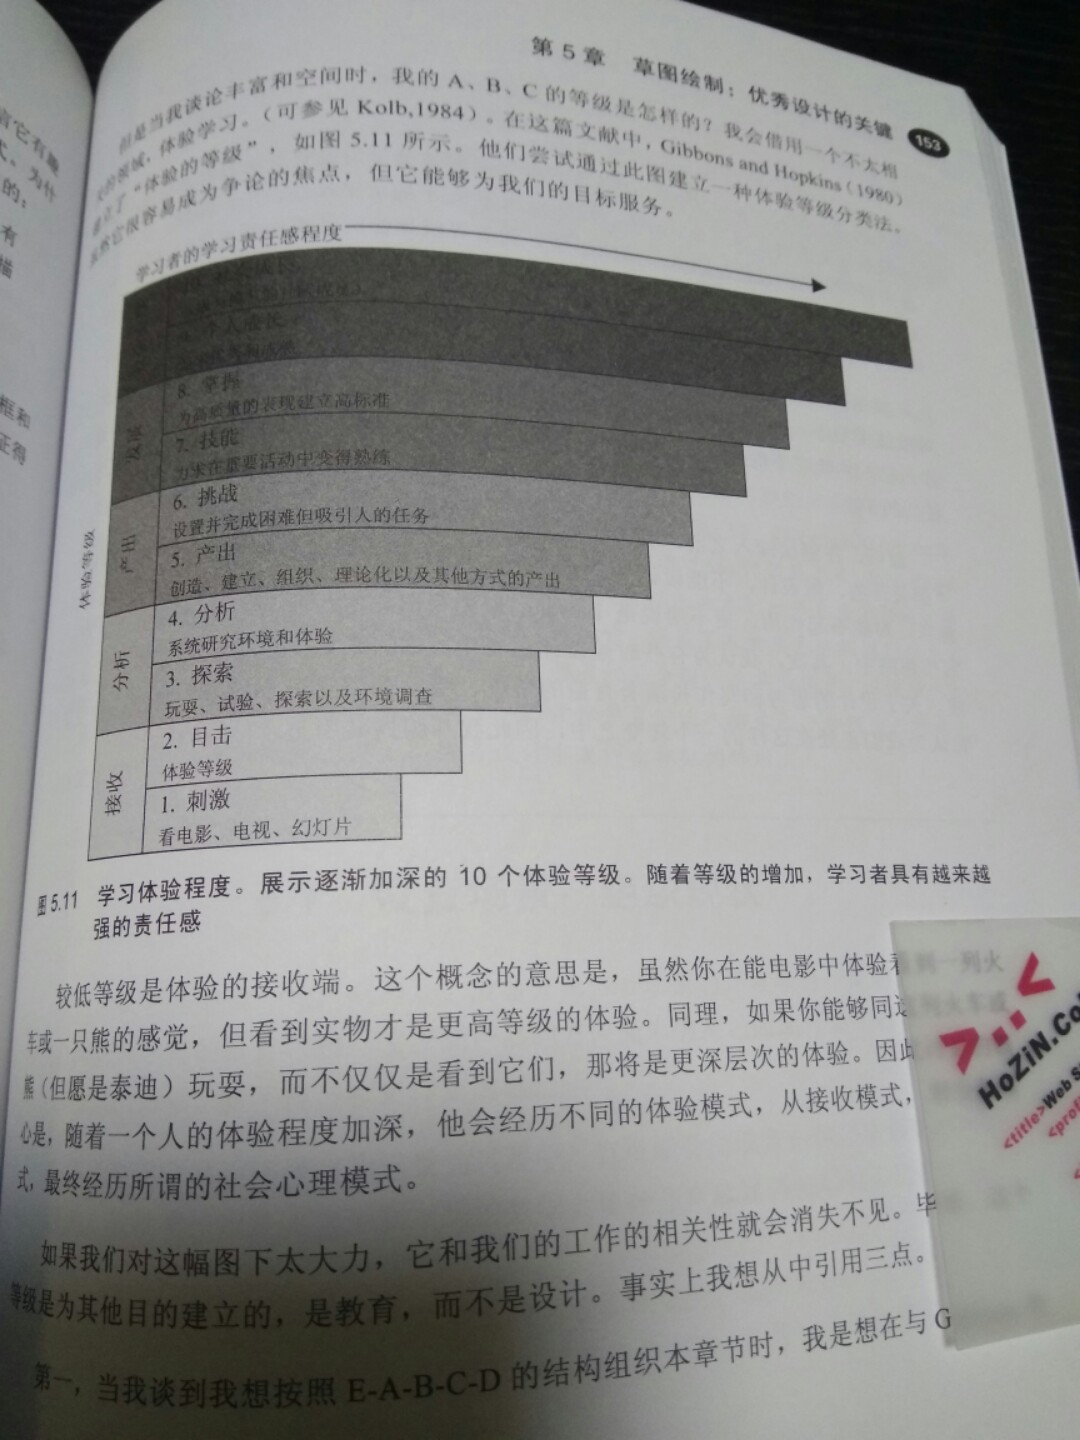 第 5 章 草图绘制：优秀设计的关键 153
但是当我谈论丰富和空间时，我的 A、B、C 的等级是怎样的？我会借用一个不太相
的领域，体验学习。（可参见 Kolb,1984）。在这篇文献中，Gibbons and Hopkins（1980）
建立了“体验的等级”，如图 5.11 所示。他们尝试通过此图建立一种体验等级分类法。
然它很容易成为争论的焦点，但它能够为我们的目标服务。
学习者的学习责任感程度
9. 个人成长
8. 掌握
为高质量的表现建立高标准
发展
7. 技能
力求在重要活动中变得熟练
6. 挑战
设置并完成困难但吸引人的任务
产出
5. 产出
创造、建立、组织、理论化以及其他方式的产出
体验等级
4. 分析
系统研究环境和体验
分析
3. 探索
玩耍、试验、探索以及环境调查
2. 目击
体验等级
接收
1. 刺激
看电影、电视、幻灯片
图 5.11 学习体验程度。展示逐渐加深的 10 个体验等级。随着等级的增加，学习者具有越来越
强的责任感
较低等级是体验的接收端。这个概念的意思是，虽然你在能电影中体验看到一列火
车或一只熊的感觉，但看到实物才是更高等级的体验。同理，如果你能够同这列火车或
熊（但愿是泰迪）玩耍，而不仅仅是看到它们，那将是更深层次的体验。因此
心是，随着一个人的体验程度加深，他会经历不同的体验模式，从接收模式，
式，最终经历所谓的社会心理模式。
如果我们对这幅图下太大力，它和我们的工作的相关性就会消失不见。毕
等级是为其他目的建立的，是教育，而不是设计。事实上我想从中引用三点。
第一，当我谈到我想按照 E-A-B-C-D 的结构组织本章节时，我是想在与 G
言它有趣
为什
的：
有
描
框和
证得
HoZiN.Co
<title>Web S
<prof